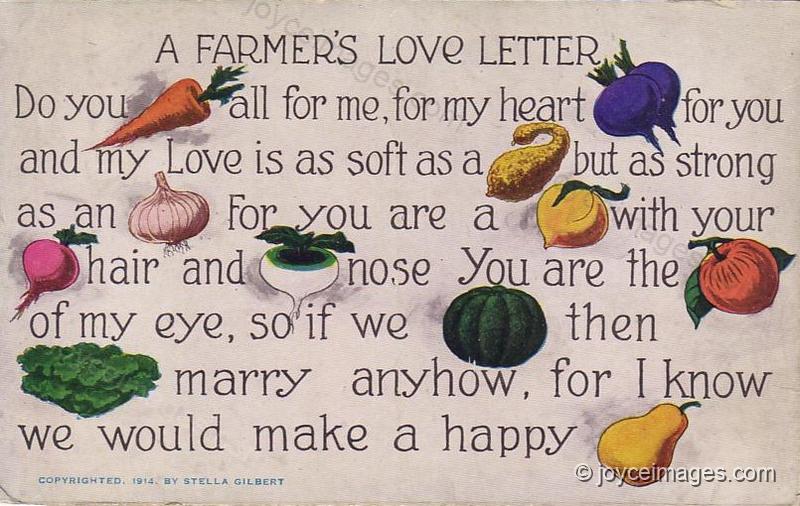 A FARMER'S LOVE LETTER
Do you all for me, for my heart for you
and my Love is as soft as a but as strong
as an For you are a with your
hair and nose You are the
of my eye, so if we then
marry anyhow, for I know
we would make a happy
COPYRIGHTED. 1914. BY STELLA GILBERT
© joyceimages.com
joyceimages.com